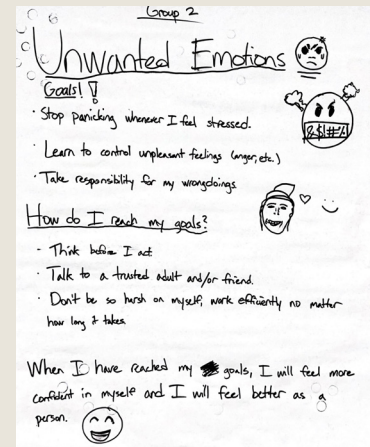 Group 2
Unwanted Emotions
Goals!
· Stop panicking whenever I feel stressed.
&$!#%
· Learn to control unpleasant feelings (anger, etc.)
· Take responsibility for my wrongdoings
How do I reach my goals?
- Think before I act
· Talk to a trusted adult and/or friend.
· Don't be so harsh on myself, work efficiently no matter
how long it takes.
When I have reached my goals, I will feel more
confident in myself and I will feel better as a
person.